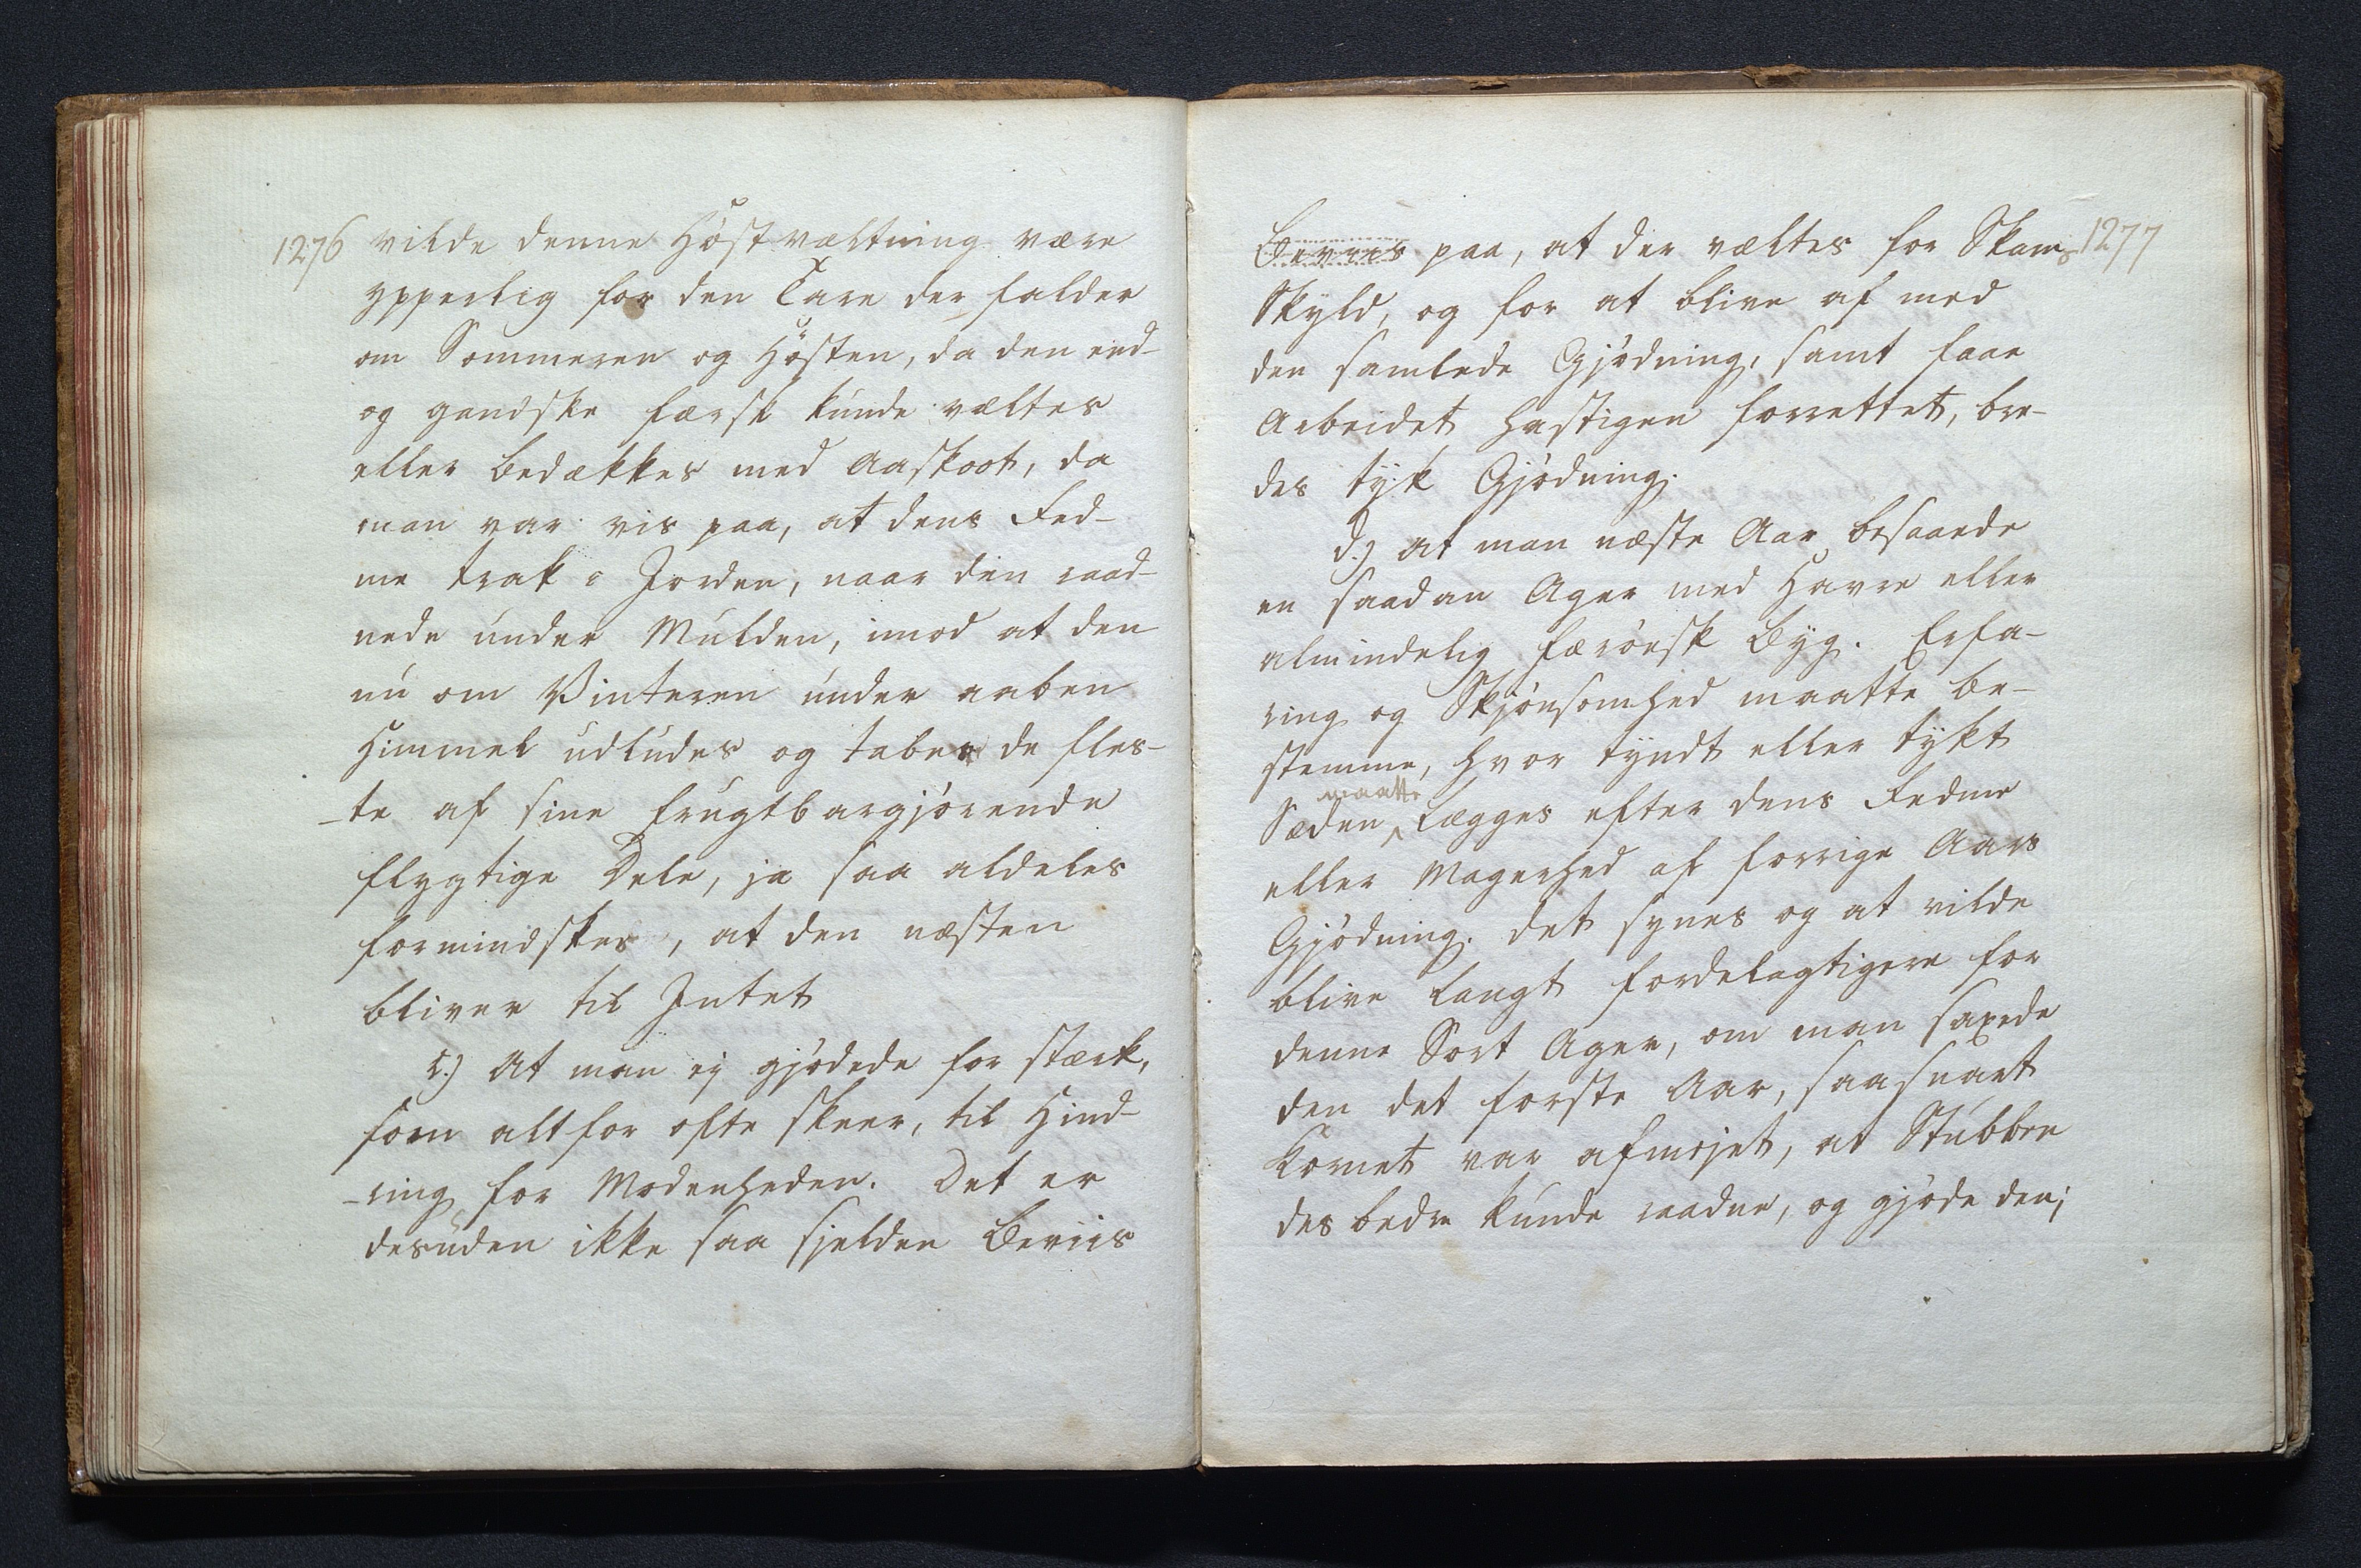 1276
vilde denne Høstvæltning være
ypperlig for den Tare der falder
om Sommeren og Høsten, da den end-
og gandske færsk kunde væltes
eller bedækkes med Aaskoot, da
man var vis paa, at dens Fed-
me trak i Jorden, naar den raad-
nede under Mulden, imod at den
nu om Vinteren under aaben
Himmel udludes og taber de fles-
-te af sine frugtbargjørende
flygtige Dele, ja saa aldeles
formindskes, at den næsten
bliver til Intet
c.) At man ej gjødede for stærk,
som altfor ofte skeer, til Hind-
-ring for Modenheden. Det er
desuden ikke saa sjelden Beviis
1277
Beviis paa, at der væltes for Skams
Skyld, og for at blive af med
den samlede Gjødning, samt faae
Arbeidet hastigen forrettet, bre-
des tyk Gjødning.
d.) at man næste Aar besaaede
en saadan Ager med Havre eller
almindelig færøesk Byg. Erfa-
ring og Skjønsomhed maatte be-
stemme, hvor tyndt eller tykt
maatte
Sæden lægges efter dens Fedme
eller Magerhed af forrige Aars
Gjødning. Det synes og at vilde
blive langt fordelagtigere for
denne Sort Ager, om man saxede
den det første Aar, saasnart
Kornet var afmejet, at Stubben
des bedre kunde raadne, og gjøde den;